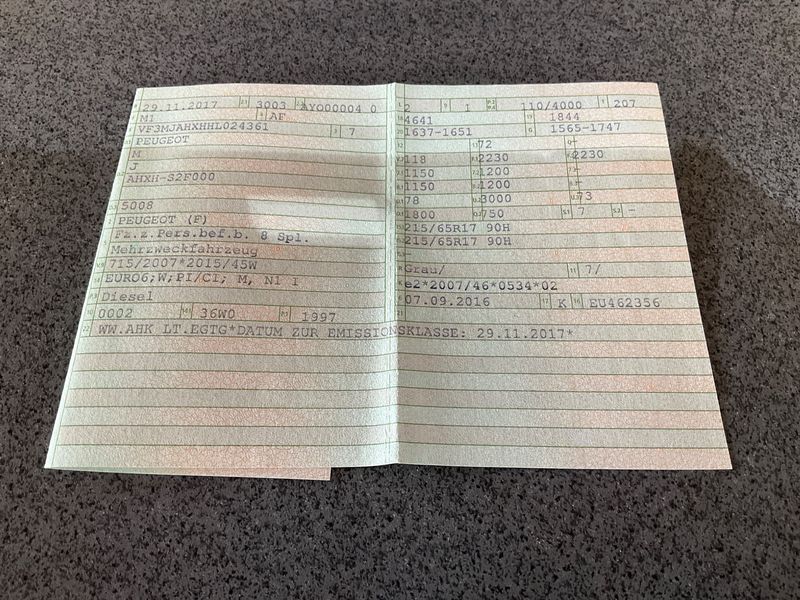 29.11.2017 3003 AYO00004 0
M1 AF
VF3MJAHXHHL024361 7
PEUGEOT
M
J
AHXH-S2F000
5008
PEUGEOT (F)
Fz.z.Pers.bef.b. 8 Spl.
Mehrzweckfahrzeug
715/2007*2015/45W
EURO6;W;PI/CI; M, N1 I
Diesel
0002 36W0 1997
2 1 110/4000 207
4641 1844
1637-1651 1565-1747
72 -
118 2230 2230
1150 1200 -
1150 1200 -
78 3000 73
1800 750 S.1 7 S.2 -
215/65R17 90H
215/65R17 90H
-
Grau/ 7/
e2*2007/46*0534*02
07.09.2016 K EU462356
22 WW.AHK LT.EGTG*DATUM ZUR EMISSIONSKLASSE: 29.11.2017*